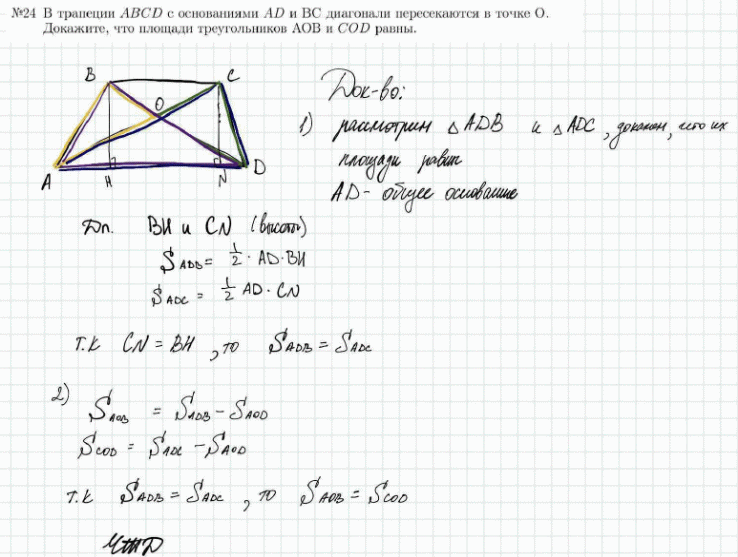 №24 В трапеции ABCD с основаниями AD и BC диагонали пересекаются в точке O.
Докажите, что площади треугольников AOB и COD равны.
B
C
O
A
H
N
D
Док-во:
1) рассмотрим △ ADB и △ ADC, докажем, что их
площади равны
AD - общее основание
Дп. BH и CN (высоты)
S ADB = 1/2 · AD · BH
S ADC = 1/2 AD · CN
т.к CN = BH, то S ADB = S ADC
2)
S AOB = S ADB - S AOD
S COD = S ADC - S AOD
т.к S ADB = S ADC, то S AOB = S COD
ЧТД